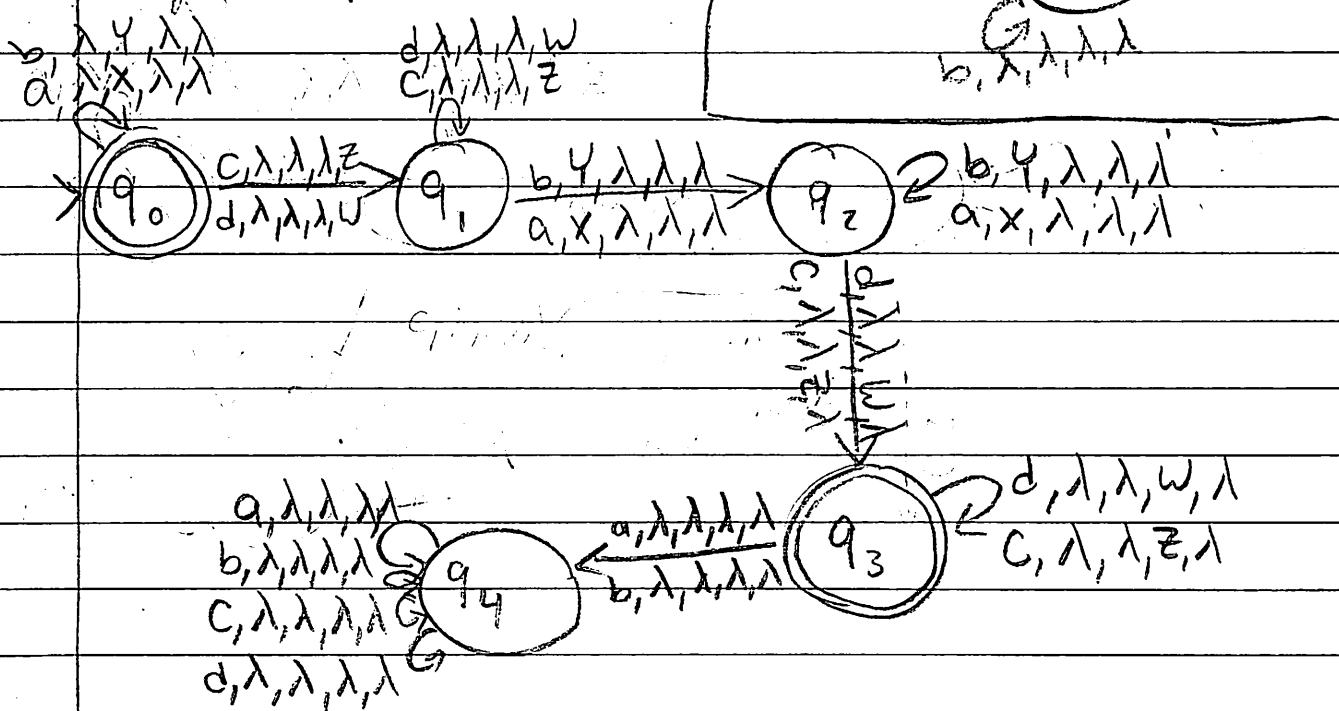 b, λ, Y, λ, λ
a, λ, X, λ, λ
d, λ, λ, λ, W
C, λ, λ, λ, Z
b, λ, λ, λ, λ
q0
C, λ, λ, λ, Z
d, λ, λ, λ, W
q1
b, Y, λ, λ, λ
a, X, λ, λ, λ
q2
b, Y, λ, λ, λ
a, X, λ, λ, λ
d, λ, λ, W, λ
C, λ, λ, Z, λ
q3
d, λ, λ, W, λ
C, λ, λ, Z, λ
a, λ, λ, λ, λ
b, λ, λ, λ, λ
q4
a, λ, λ, λ, λ
b, λ, λ, λ, λ
C, λ, λ, λ, λ
d, λ, λ, λ, λ